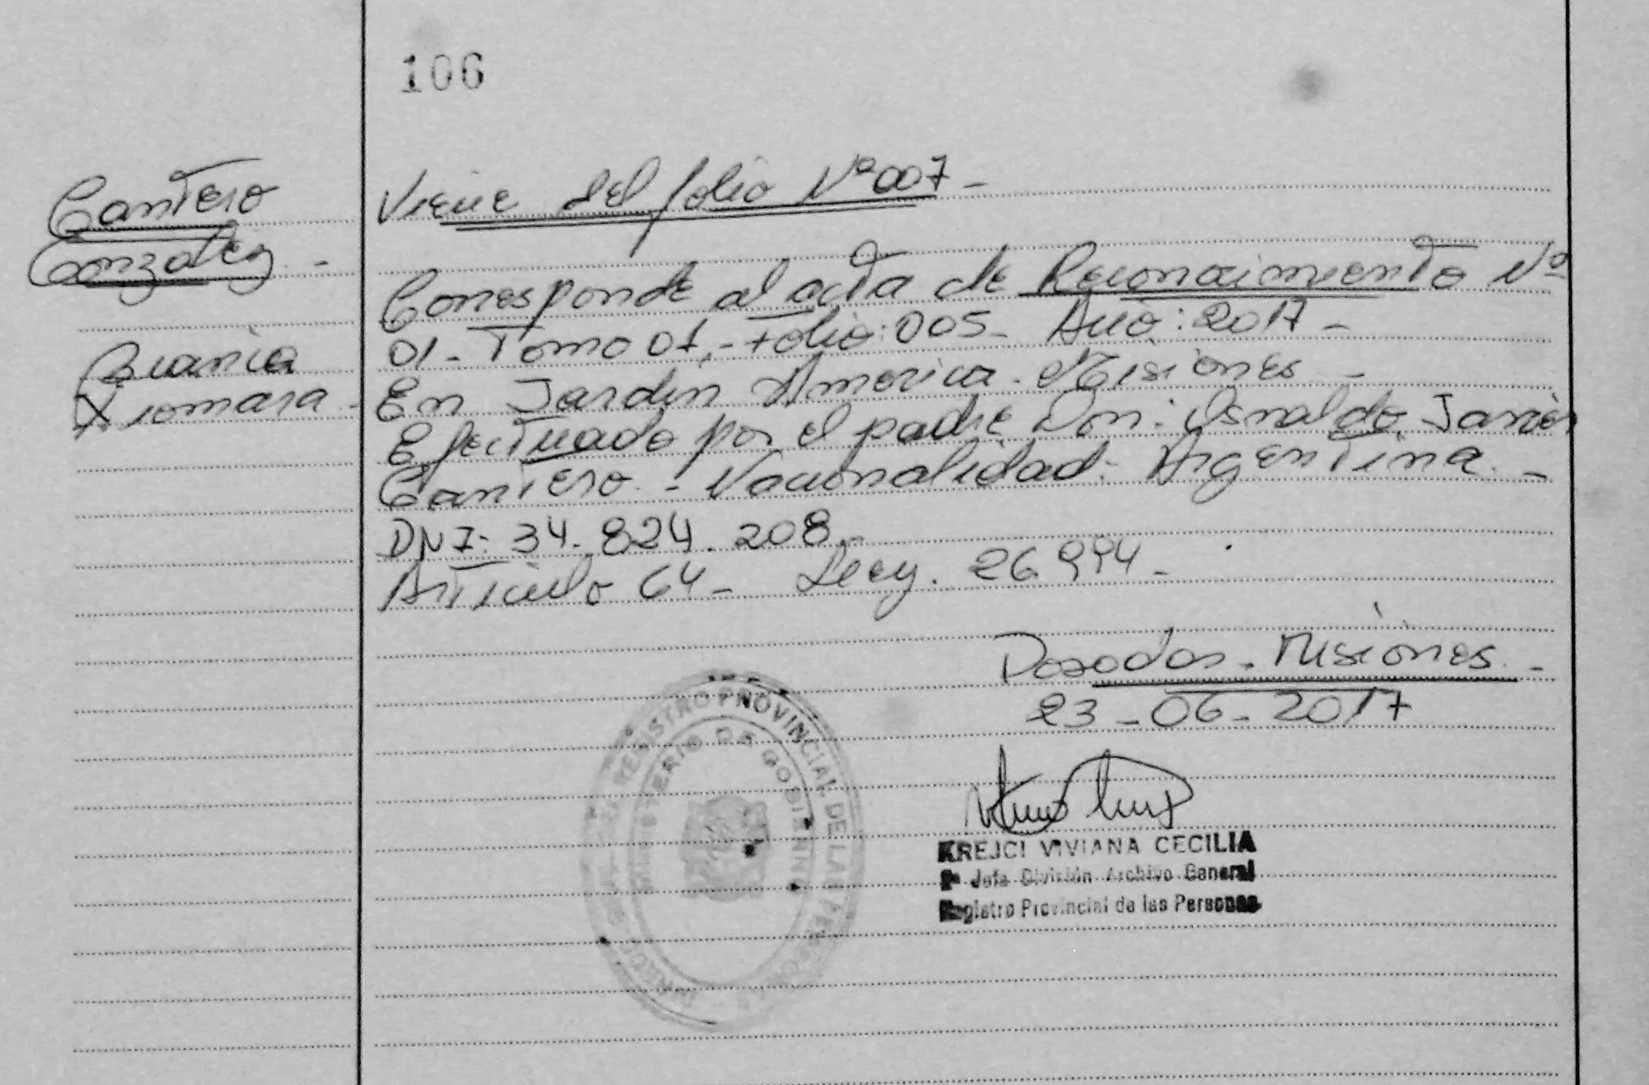 106
Cantero
Gonzalez -
Bianca
Xiomara -
Viene del folio Nº 007 -
Corresponde al acta de Reconocimiento Nº
01 - Tomo 01 - folio: 005 - Año: 2017 -
En Jardín America. Misiones -
Efectuado por el padre Don: Osvaldo Javier
Cantero. - Nacionalidad: Argentina. -
DNI: 34.824.208 -
Artículo 64 - Ley. 26.994 -
Posadas. Misiones -
23 - 06 - 2017
KREJCI VIVIANA CECILIA
Jefa División Archivo General
Registro Provincial de las Personas
REGISTRO PROVINCIAL DE LAS PERSONAS
MINISTERIO DE GOBIERNO